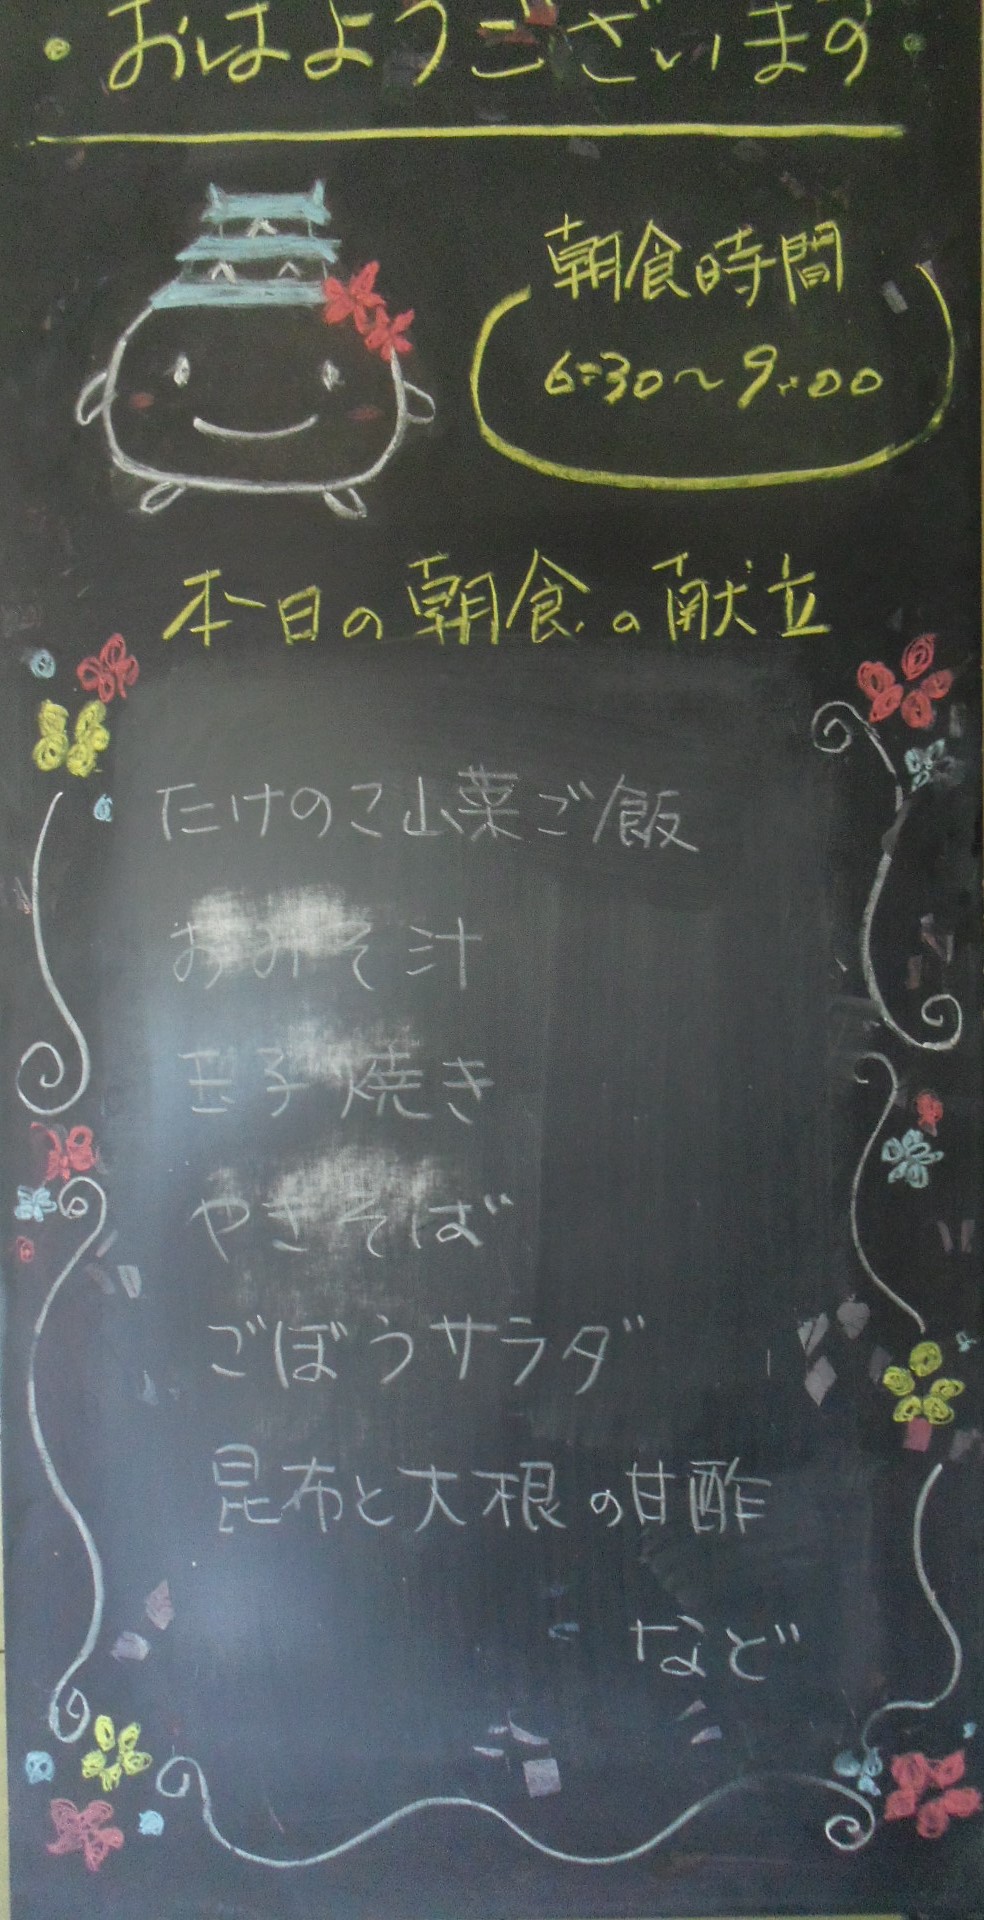 おはようございます
朝食時間
6:30〜9:00
本日の朝食の献立
たけのこ山菜ご飯
おみそ汁
玉子焼き
やきそば
ごぼうサラダ
昆布と大根の甘酢
など